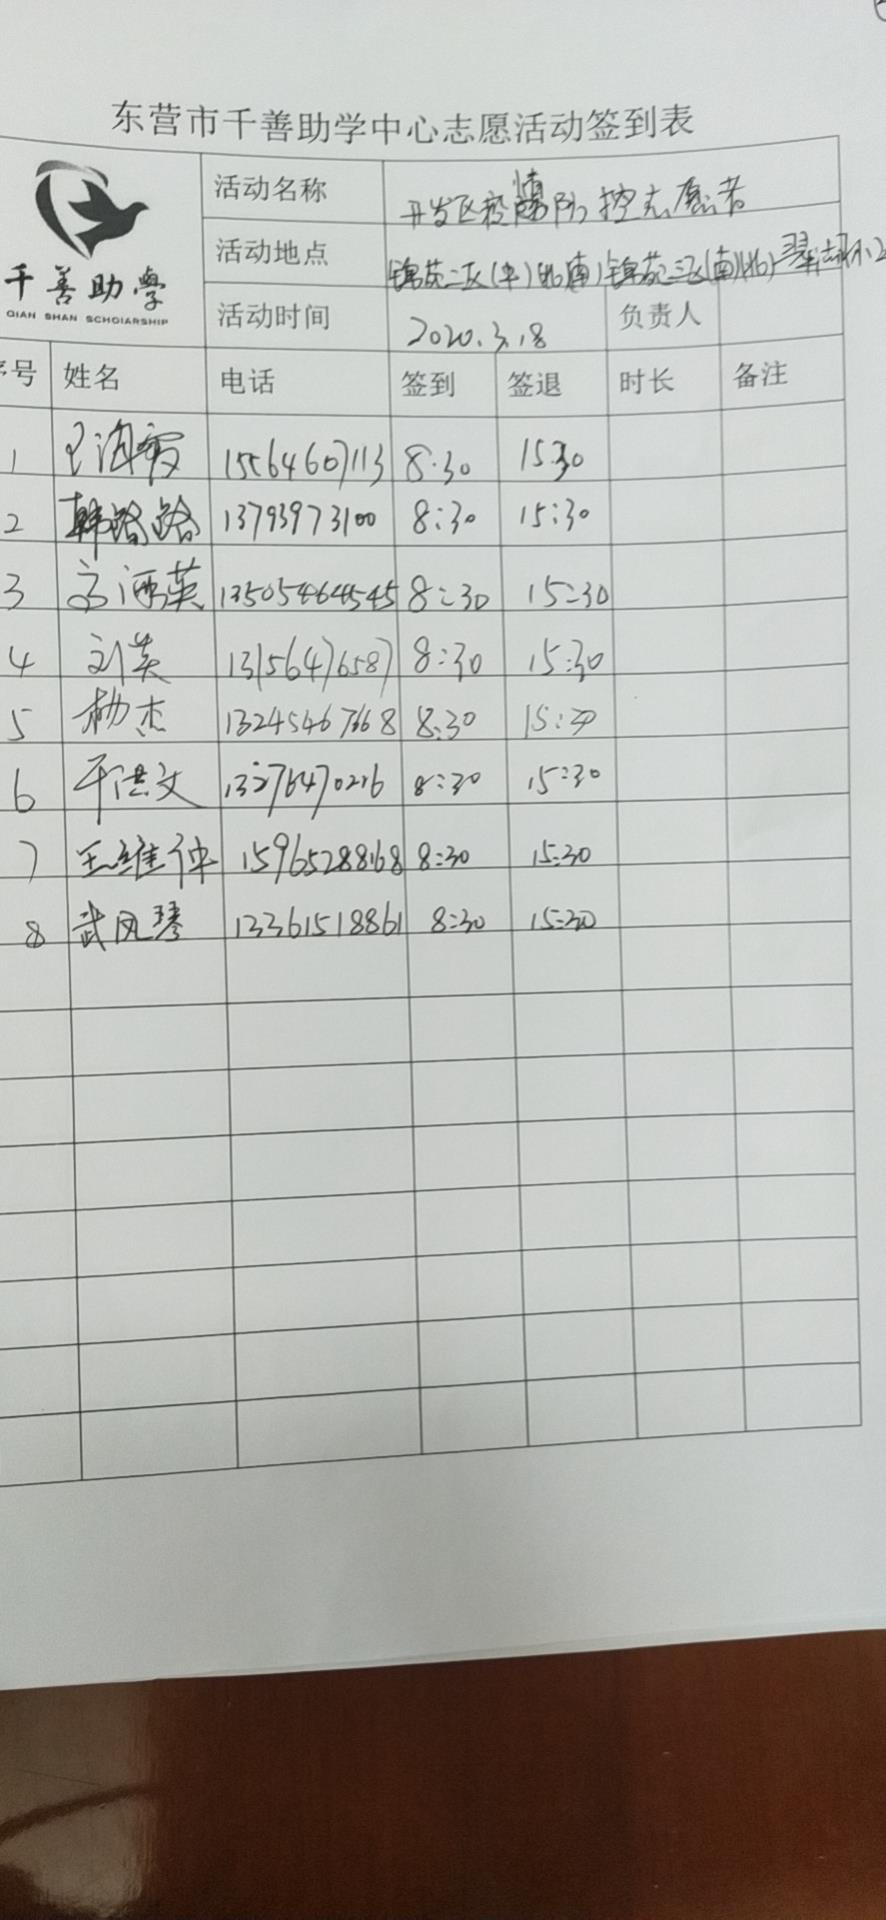 东营市千善助学中心志愿活动签到表
千善助學
QIAN SHAN SCHOIARSHIP
活动名称 开发区疫情防控志愿者
活动地点 锦苑二区(中)(北)(南)锦苑三区(南)(北)
活动时间 2020.3.18 负责人
序号 姓名 电话 签到 签退 时长 备注
1 王海霞 15564607113 8:30 15:30
2 韩路路 13793973100 8:30 15:30
3 13505464545 8:30 15:30
4 刘英 13156476587 8:30 15:30
5 杨杰 8:30 15:30
6 于洪文 13276470216 8:30 15:30
7 王维仲 15965288168 8:30 15:30
8 武凤琴 13361518861 8:30 15:30